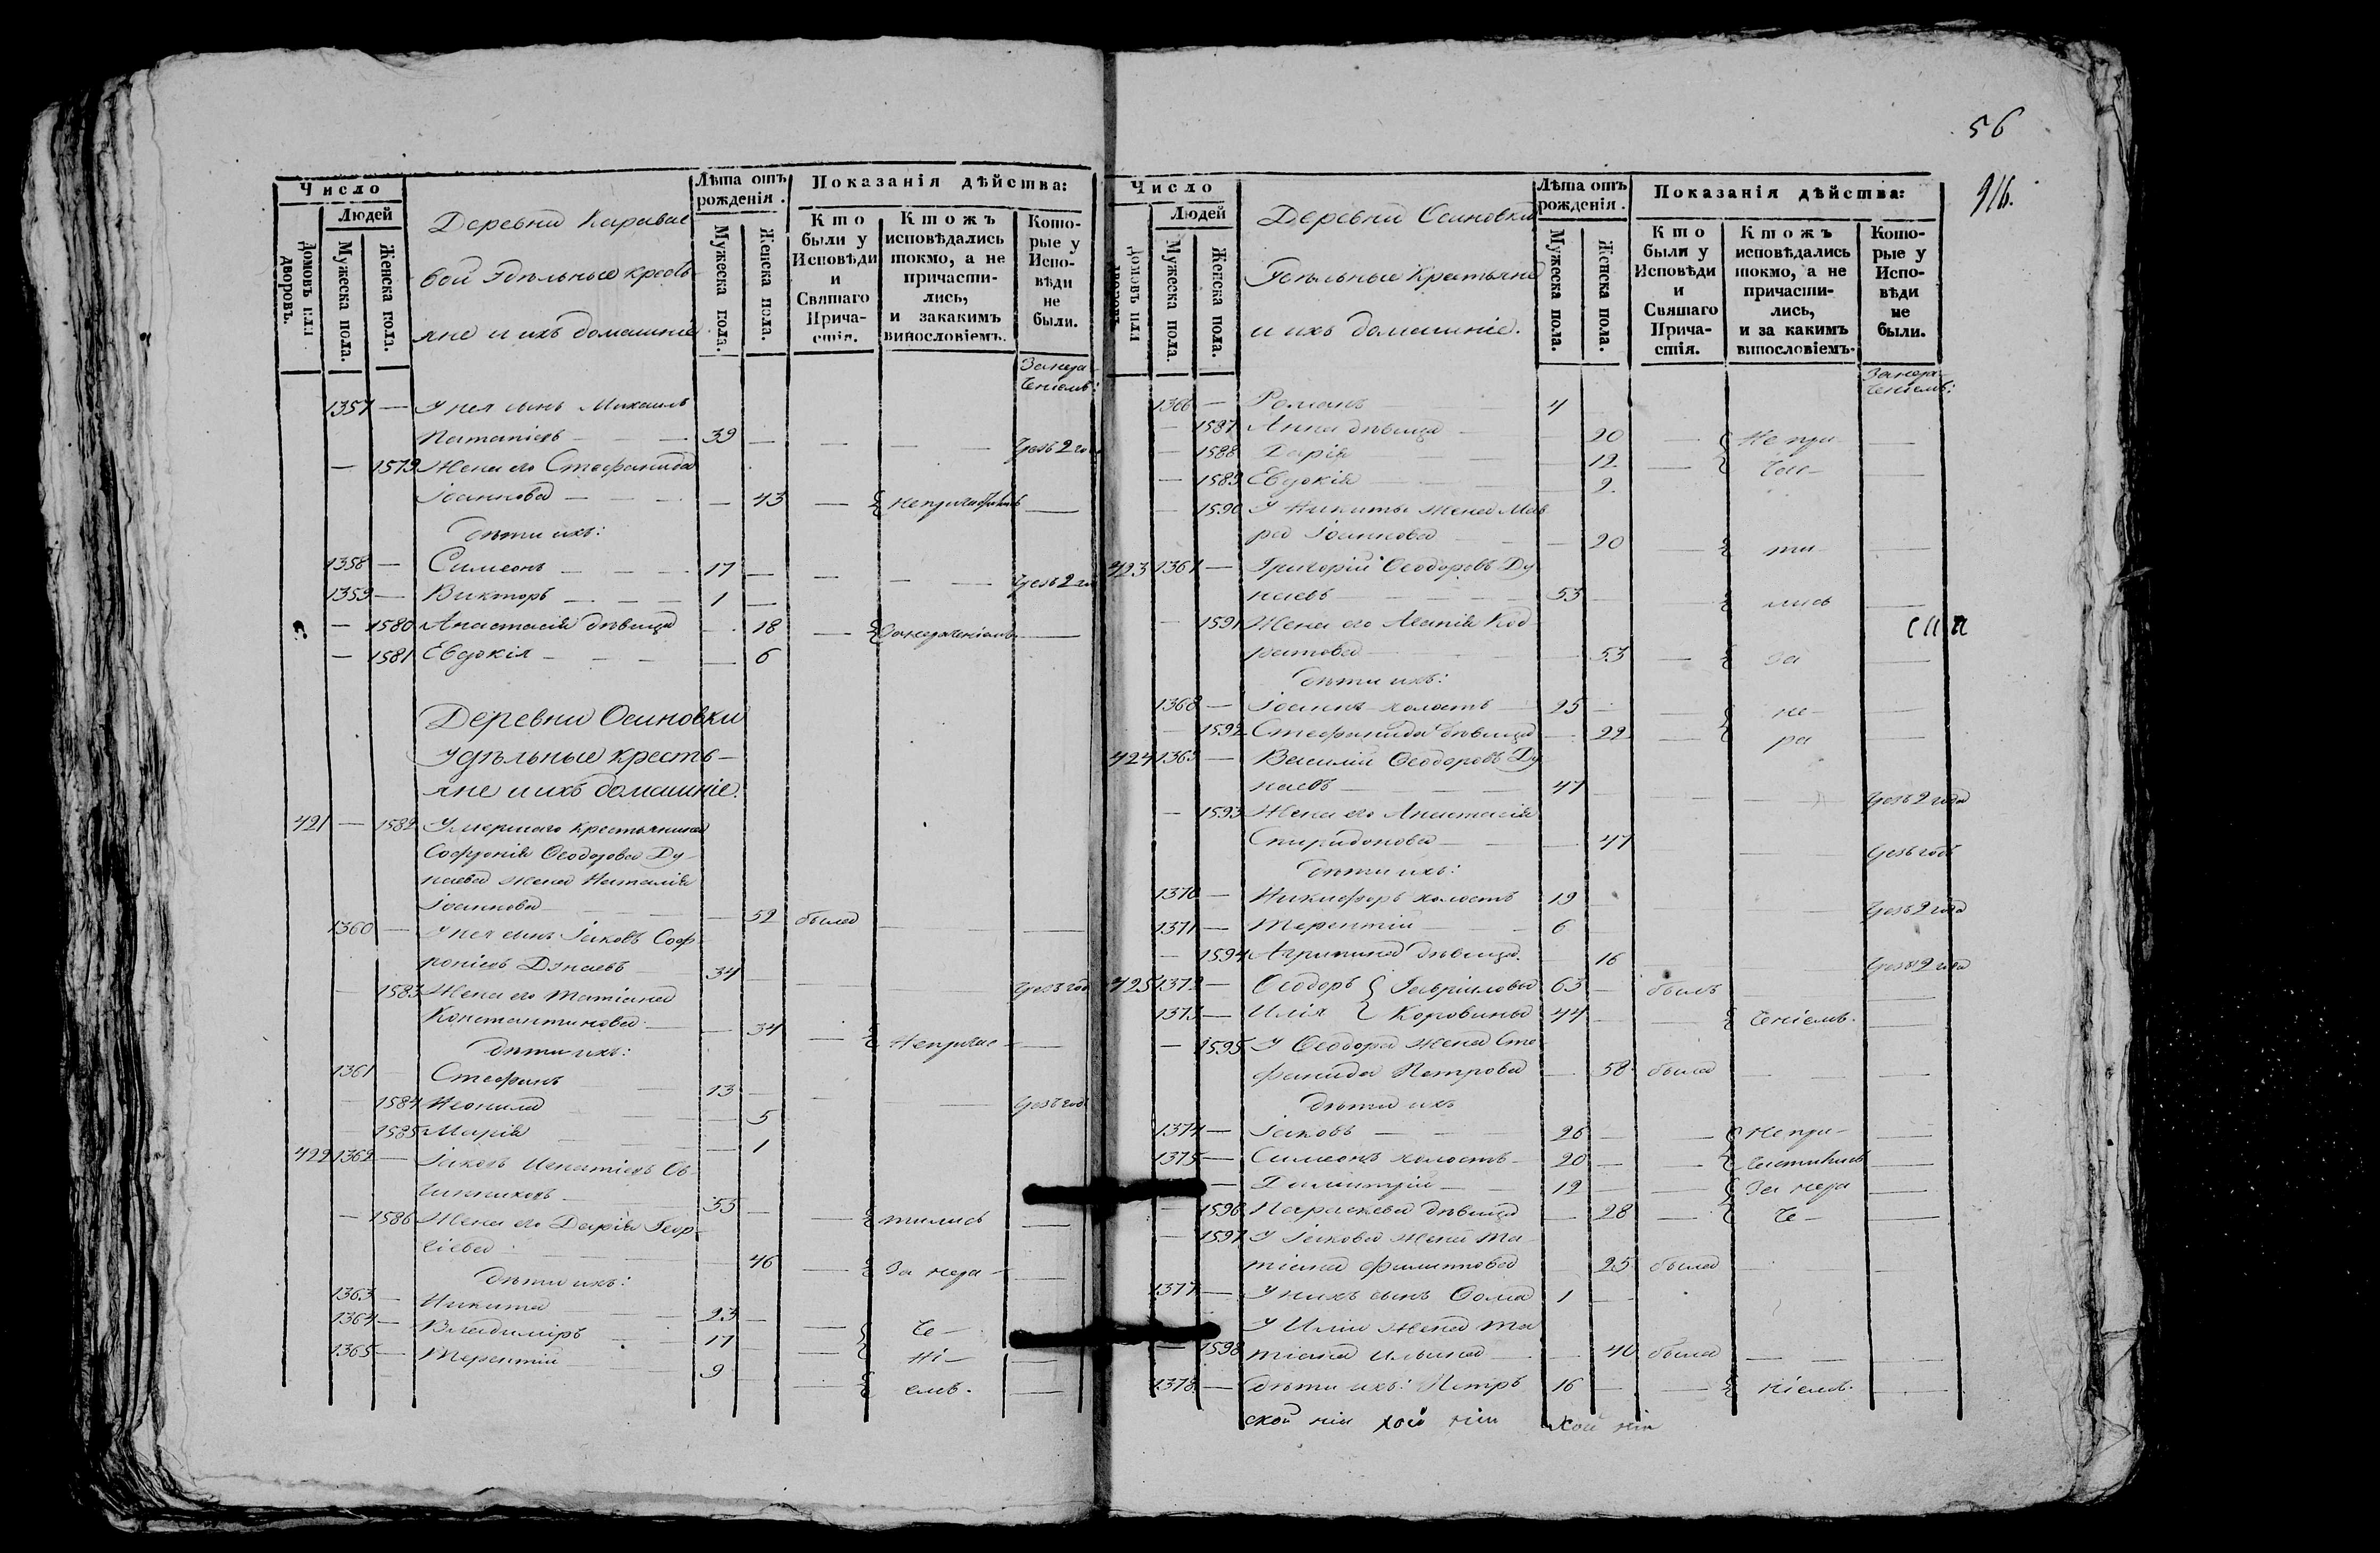 Число
Людей
Домовъ или дворовъ.
Мужеска пола.
Женска пола.
Деревни Каравае
вой Удѣльные кресть-
яне и ихъ домашніе
Лѣта отъ рожденія.
Мужеска пола.
Женска пола.
Показанія дѣйства:
Кто были у Исповѣди и Святаго Прича-стія.
Ктожъ исповѣдались токмо, а не причасти-лись, и закакимъ винословіемъ.
Кото-рые у Испо-вѣди не были.
За нера-
ченіемъ:
1357 — У нея сынъ Михаилъ
39 — — — Чрезъ 2 го
— 1579 Жена его Стефанида
Іоаннова — — — 43 —
дѣти ихъ:
1358 — Симеонъ — — 17 — — — Чрезъ 2 го
1359 — Викторъ — — 1 —
— 1580 Анастасія дѣвица — 18 — За нераченіемъ —
— 1581 Евдокія — — — 6
Деревни Осиновки
Удѣльные кресть-
яне и ихъ домашніе.
421 — 1582 Умершаго крестьянина
Софронія Ѳеодорова Ду-
наева жена Наталія
Іоаннова — 52 была — —
1360 — У нея сынъ Іаковъ Соф-
роніевъ Дунаевъ 34 — — — Чрезъ год
— 1583 Жена его Татіана
Константинова — 34 — Непричас — —
дѣти ихъ:
1361 Стефанъ 13 — — — Чрезъ годъ
— 1584 Неонила — 5
— 1585 Марія — 1
422 1362 — Іаковъ Игнатіевъ Ов
чинниковъ — 55 — — тились —
— 1586 Жена его Дарія Геор-
гіева — 46 — За нера- —
дѣти ихъ:
1363 — Никита 23 — — че- —
1364 — Владиміръ 17 — ні- —
1365 — Терентій 9 — — емъ. —
56
916.
Число
Людей
Домовъ или дворовъ.
Мужеска пола.
Женска пола.
Деревни Осиновки
Удѣльные Крестьяне
и ихъ домашніе.
Лѣта отъ рожденія.
Мужеска пола.
Женска пола.
Показанія дѣйства:
Кто были у Исповѣди и Святаго Прича-стія.
Ктожъ исповѣдались токмо, а не причасти-лись, и за какимъ винословіемъ.
Кото-рые у Испо-вѣди не были.
За нера-
ченіемъ:
1366 — Романъ — — 4
— 1587 Анна дѣвица — 20 — Не при- —
— 1588 Дарія — 12 — час- —
— 1589 Евдокія — 9.
— 1590 У Никиты жена Мав
ра Іоаннова — 20 — ти- —
423 1367 — Григорій Ѳеодоровъ Ду
наевъ — 53 — — лись —
— 1591 Жена его Код
ратова — 53 — За —
дѣти ихъ:
1368 — Іоаннъ холостъ 25 — — не- —
— 1592 Стефанида дѣвица — 22 — ра —
424 1369 — Василій Ѳеодоровъ Ду
наевъ — 47 — — — Чрезъ 2 года
— 1593 Жена его Анастасія
Спиридонова — 47 — — Чрезъ годъ
дѣти ихъ:
1370 — Никифоръ холостъ 19 — — — Чрезъ 2 года
1371 — Терентій — 6
— 1594 Агрипина дѣвица. — 16 — — Чрезъ 2 года
425 1372 — Ѳеодоръ Гавриловы 63 — былъ — —
1373 — Илія Коровины 44 — — ченіемъ. —
— 1595 У Ѳеодора жена Сте
фанида Петрова — 58 была — —
дѣти ихъ
1374 — Іаковъ — 26 — — Непри- —
1375 — Симеонъ холостъ 20 — — частились —
— Димитрій — 12 — — За нера —
— 1596 Параскева дѣвица — 28 — че- —
— 1597 У Іакова жена Та
тіана Филиппова 25 была — —
1377 — У нихъ сынъ Ѳома 1 —
У Иліи жена Та
— 1598 тіана Ильина — 40 была — —
1378 — дѣти ихъ: Петръ 16 — — ніемъ. —
ской ніи хой ніи хой ніи